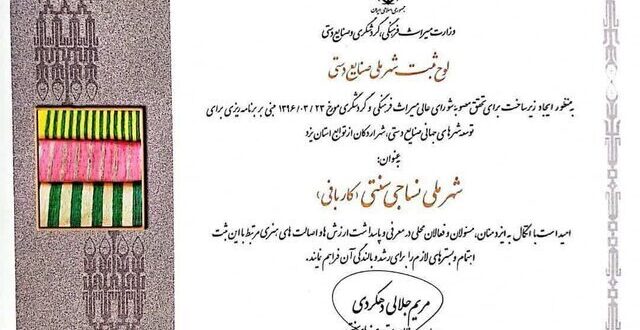 جمهوری اسلامی ایران
وزارت میراث فرهنگی، گردشگری و صنایع دستی
لوح ثبت شهر ملی صنایع دستی
به منظور ایجاد زیرساخت برای تحقق مصوبه شورای عالی میراث فرهنگی و گردشگری مورخ ۱۳۹۶/۳/۲۳ مبنی بر برنامه ریزی برای
توسعه شهرهای جهانی صنایع دستی، شهر اردکان از توابع استان یزد
به عنوان:
شهر ملی نساجی سنتی (کاربافی)
امید است با اتکال به ایزد منان، مسئولان و فعالان محلی در معرفی و پاسداشت ارزش ها و اصالت های هنری مرتبط با این ثبت
اهتمام و بسترهای لازم را برای رشد و بالندگی آن فراهم نمایند.
مریم جلالی دهکردی